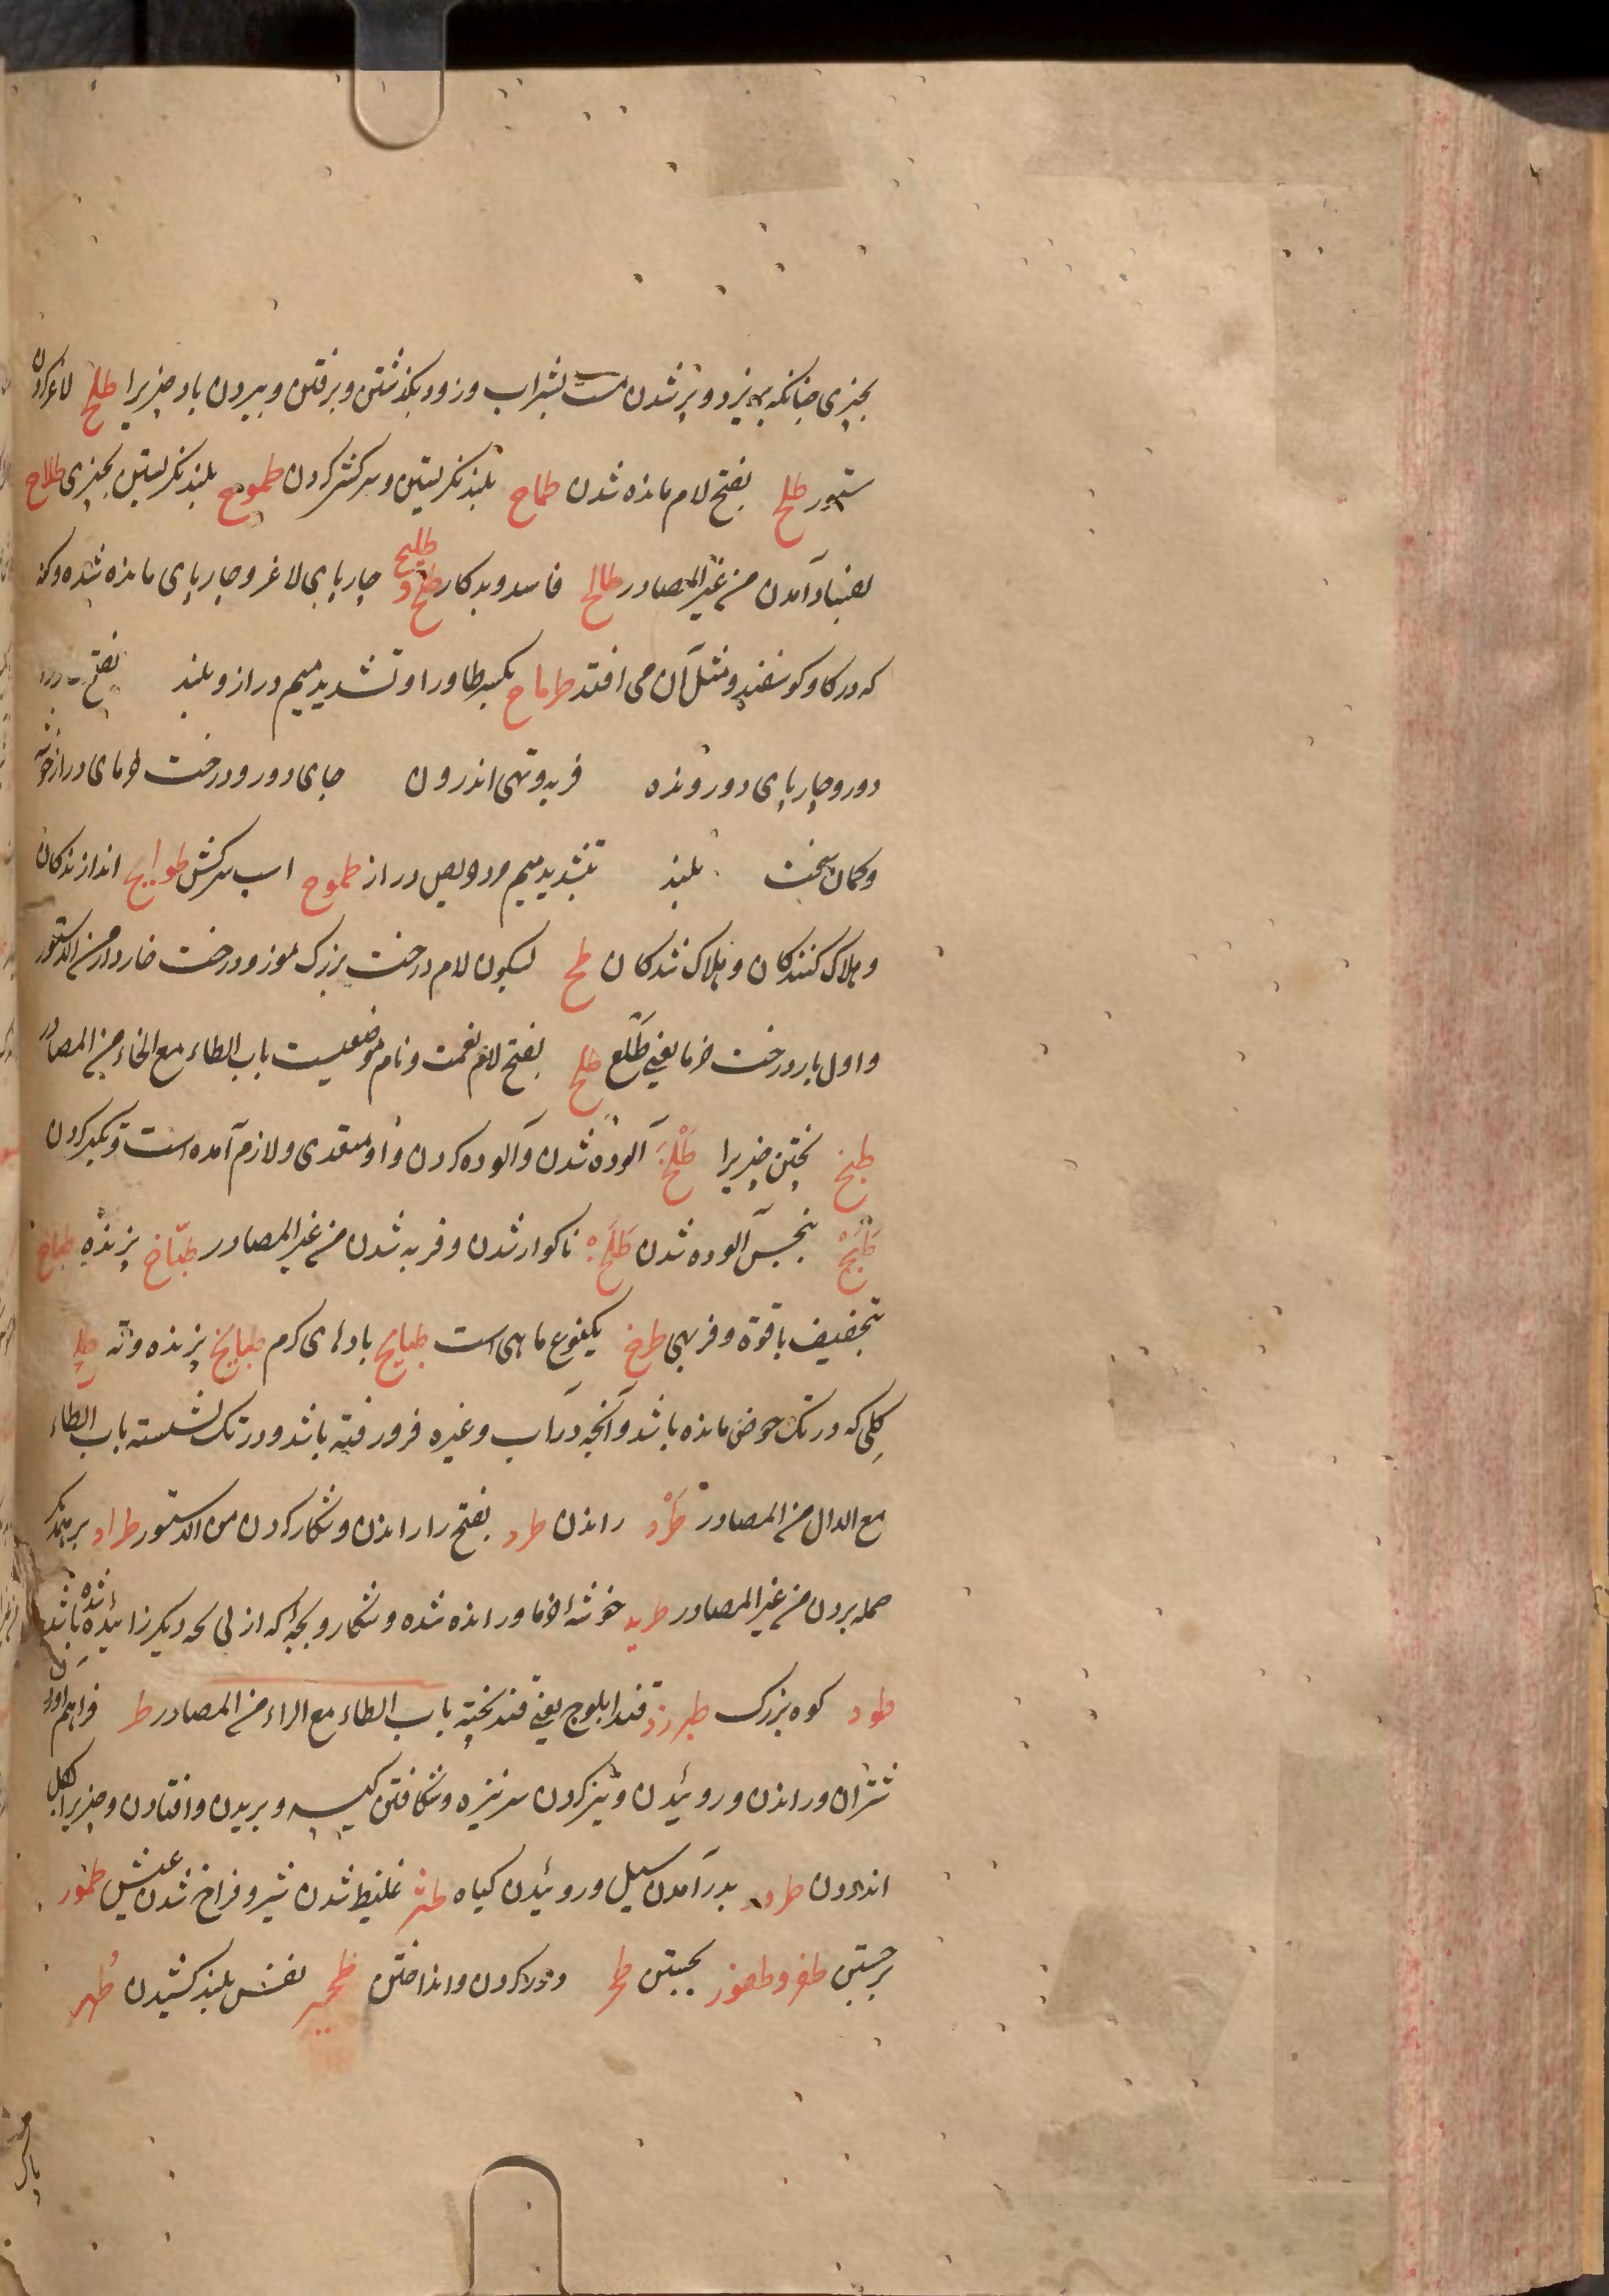 بچیزی چنانکه بریزد و پر شدن مست بشراب و زود بگذشتن و برفتن و ببردن باد چیزیرا طلح لاغر کردن
ستور طلح بفتح لام مانده شدن طماح بلند نکریستن و سرکشی کردن طموح بلند نکریستن بچیزی طلاح
بفساد آمدن من غیر المصادر طالح فاسد و بدکار طلح و طلیح چارپای لاغر و چارپای مانده شده و کنه
که در کاو و کوسفند و مثل آن می افتد طرماح بکسر طا و را و تشدید میم دراز و بلند بفتح
دور و چارپای دور رونده فربه و تهی اندرون جای دور و درخت خرمای دراز خوشه
و کمان سخت بلند بتشدید میم مرد حریص دراز طموح اسب سرکش طوایح اندازندکان
و هلاک کنندکان و هلاک شدکان طلح بسکون لام درخت بزرک موز و درخت خاردار من الدستور
و اول بار درخت خرما یعنی طلع طلح بفتح لام نعمت و نام موضعیست باب الطاء مع الخاء من المصادر
طبخ پختن چیزیرا طلخ آلوده شدن و آلوده کردن و او متعدی و لازم آمده است و تکبر کردن
بنجس آلوده شدن ناکوار شدن و فربه شدن من غیر المصادر طباخ پزنده طباخ
بتخفیف با قوة و فربهی طرخ یکنوع ماهی است طبایخ بادهای کرم پزنده
کلی که در تک حوض مانده باشد و آنچه در آب و غیره فرو رفته باشد و در تک نشسته باب الطاء
مع الدال من المصادر طرد راندن طرد بفتح را راندن و شکار کردن من الدستور طراد بر همدکر
حمله بردن من غیر المصادر طرید خوشهٔ خرما و رانده شده و شکار و بچه که از پی بچه دیکر زائیده شده باشد
طود کوه بزرک طبرزد قند ابلوج یعنی قند پخته باب الطاء مع الراء من المصادر طر فراهم آوردن
شتران و راندن و روئیدن و تیز کردن سر نیزه و شکافتن کیسه و بریدن و افتادن و چیزیرا بکل
اندودن طرور بدر آمدن سیل و روئیدن کیاه طثر غلیظ شدن شیر و فراخ شدن عیش طمور
برجستن طفر و طفور بجستن طحر دور کردن و انداختن طحیر نفس بلند کشیدن طهر